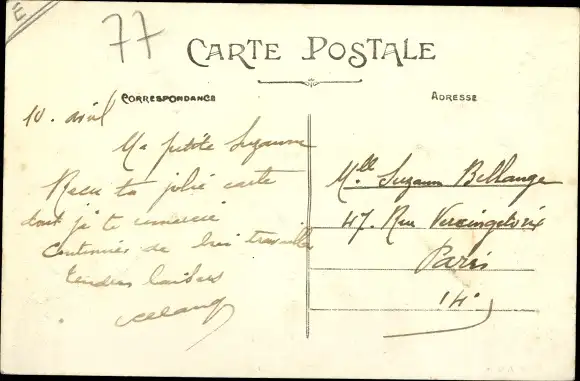 E
77
CARTE POSTALE
CORRESPONDANCE
ADRESSE
10. avril
Ma petite Suzanne
Reçu ta jolie carte
dont je te remercie
Continues de bien travailler
Tendres baisers
Mlle Suzanne Bellange
47. Rue Vercingetorix
Paris
14e